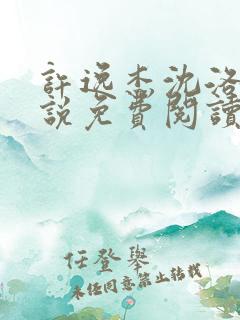 許逸杰沈洛
說免費閱讀
任登舉
未經同意禁止轉載